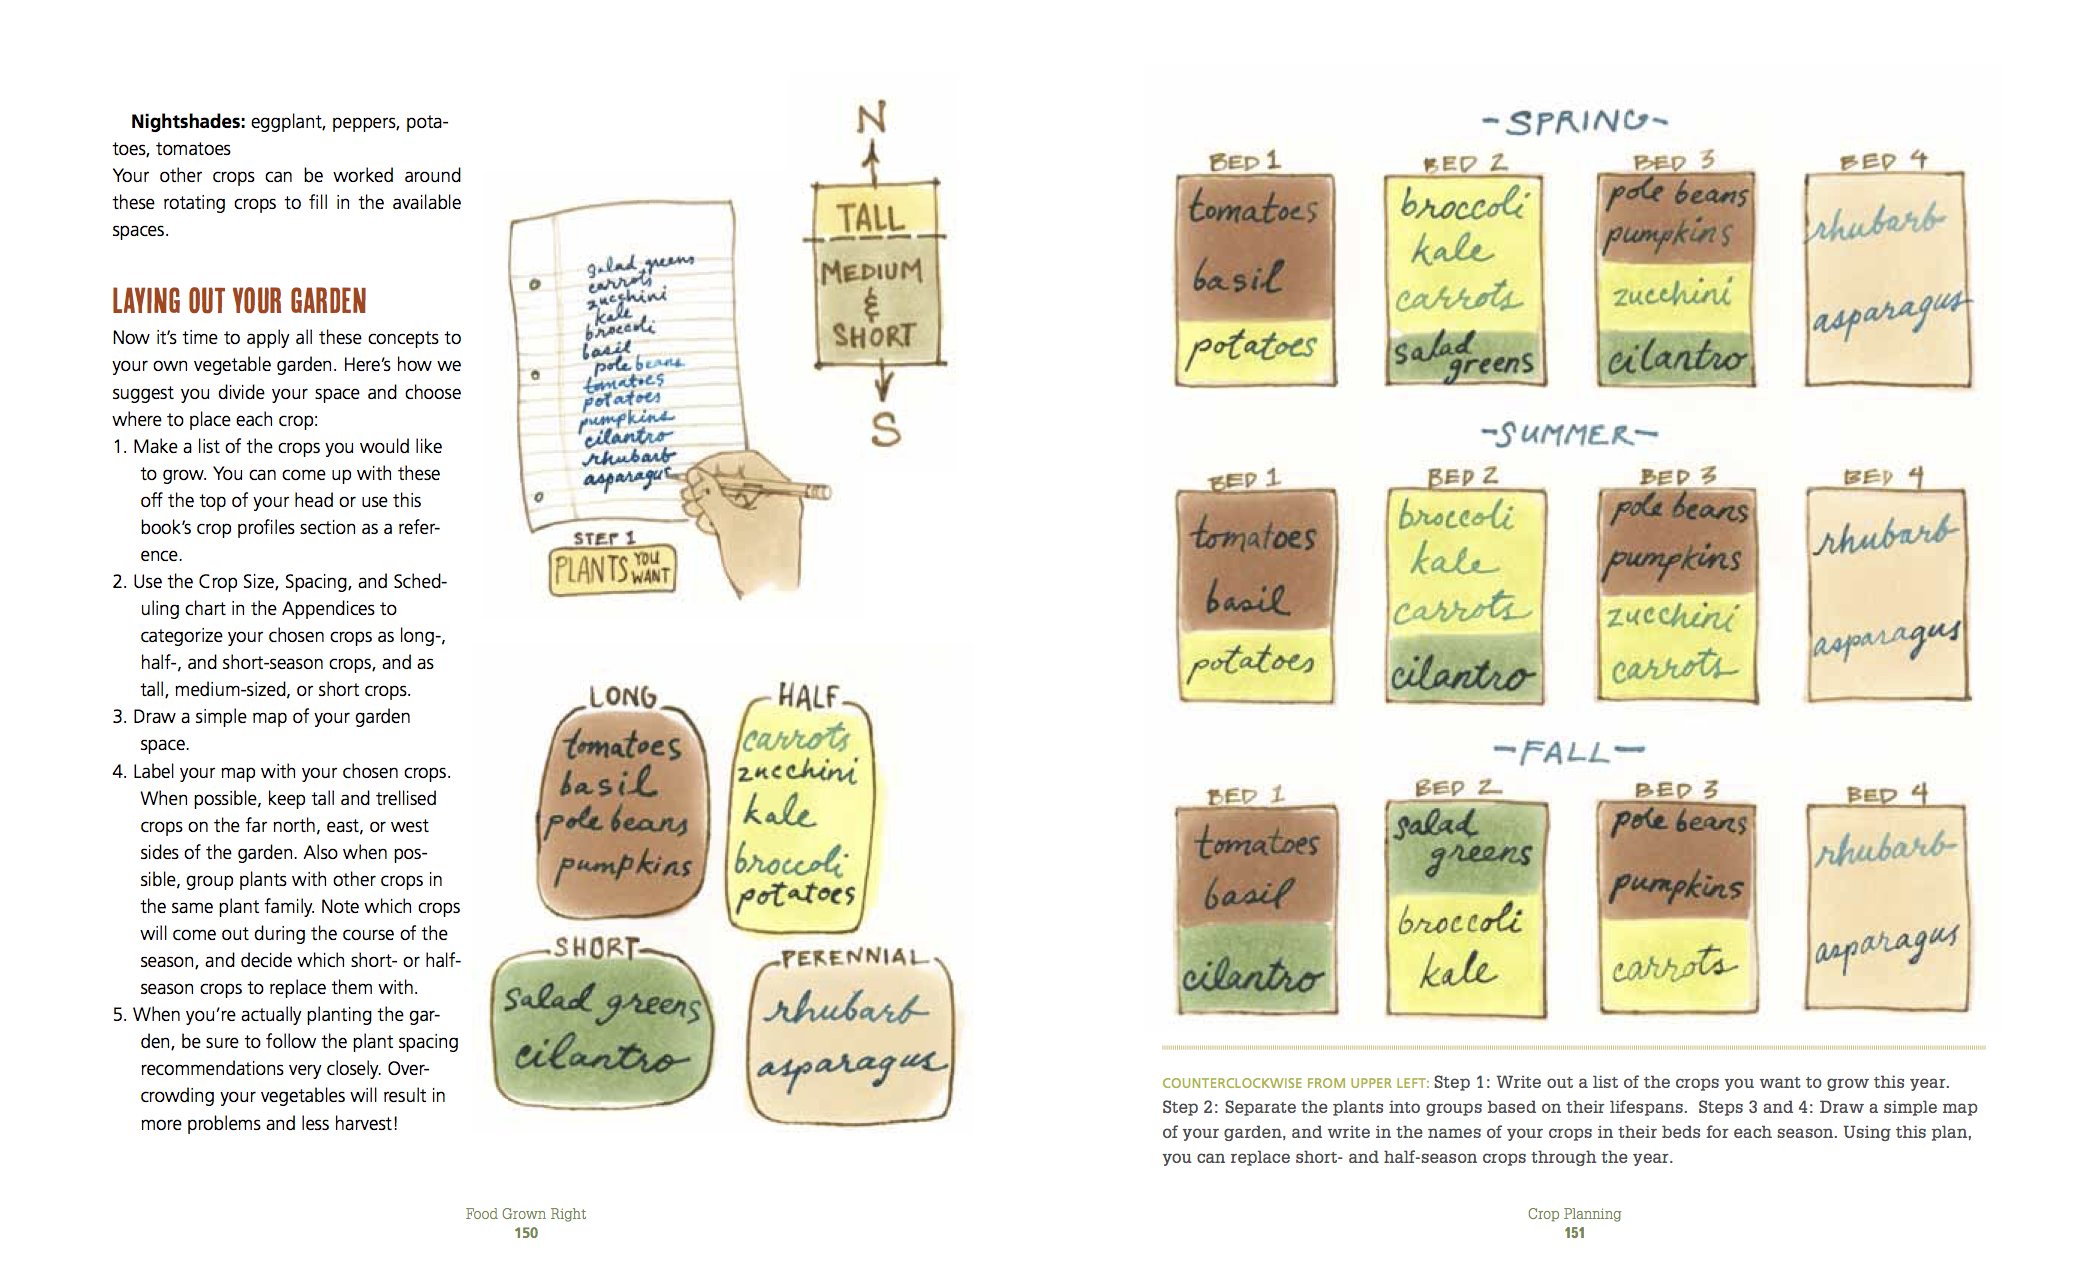 Nightshades: eggplant, peppers, pota-
toes, tomatoes
Your other crops can be worked around
these rotating crops to fill in the available
spaces.
LAYING OUT YOUR GARDEN
Now it's time to apply all these concepts to
your own vegetable garden. Here's how we
suggest you divide your space and choose
where to place each crop:
1. Make a list of the crops you would like
to grow. You can come up with these
off the top of your head or use this
book's crop profiles section as a refer-
ence.
2. Use the Crop Size, Spacing, and Sched-
uling chart in the Appendices to
categorize your chosen crops as long-,
half-, and short-season crops, and as
tall, medium-sized, or short crops.
3. Draw a simple map of your garden
space.
4. Label your map with your chosen crops.
When possible, keep tall and trellised
crops on the far north, east, or west
sides of the garden. Also when pos-
sible, group plants with other crops in
the same plant family. Note which crops
will come out during the course of the
season, and decide which short- or half-
season crops to replace them with.
5. When you're actually planting the gar-
den, be sure to follow the plant spacing
recommendations very closely. Over-
crowding your vegetables will result in
more problems and less harvest!
salad greens
carrots
zucchini
kale
broccoli
basil
pole beans
tomatoes
potatoes
pumpkins
cilantro
rhubarb
asparagus
STEP 1
PLANTS YOU WANT
N
TALL
MEDIUM
&
SHORT
S
LONG
tomatoes
basil
pole beans
pumpkins
HALF
carrots
zucchini
kale
broccoli
potatoes
SHORT
salad greens
cilantro
PERENNIAL
rhubarb
asparagus
Food Grown Right
150
-SPRING-
BED 1
tomatoes
basil
potatoes
BED 2
broccoli
kale
carrots
salad
greens
BED 3
pole beans
pumpkins
zucchini
cilantro
BED 4
rhubarb
asparagus
-SUMMER-
BED 1
tomatoes
basil
potatoes
BED 2
broccoli
kale
carrots
cilantro
BED 3
pole beans
pumpkins
zucchini
carrots
BED 4
rhubarb
asparagus
-FALL-
BED 1
tomatoes
basil
cilantro
BED 2
salad
greens
broccoli
kale
BED 3
pole beans
pumpkins
carrots
BED 4
rhubarb
asparagus
COUNTERCLOCKWISE FROM UPPER LEFT: Step 1: Write out a list of the crops you want to grow this year.
Step 2: Separate the plants into groups based on their lifespans. Steps 3 and 4: Draw a simple map
of your garden, and write in the names of your crops in their beds for each season. Using this plan,
you can replace short- and half-season crops through the year.
Crop Planning
151